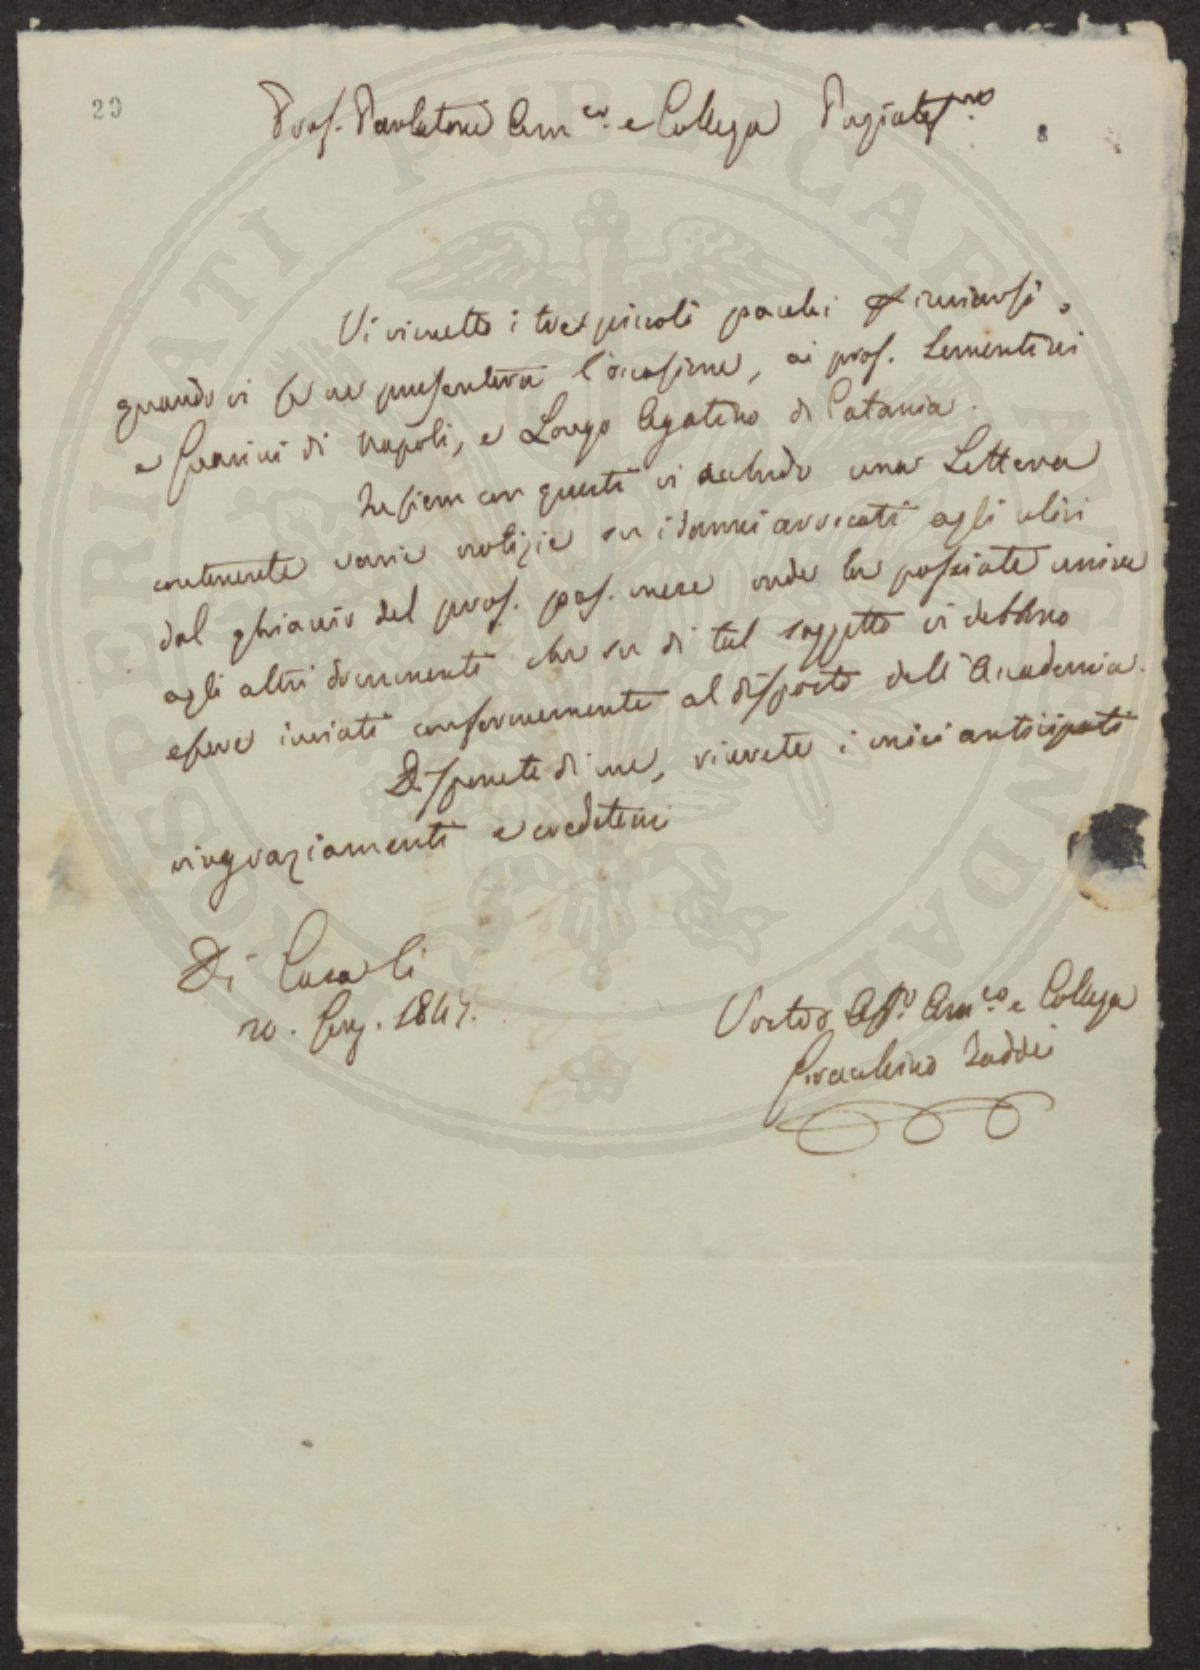 29
Prof. Parlatore Am.co e Collega Pregiatis.mo
8
Vi rimetto i tre piccoli pacchi da inviarsi,
quando vi se ne presenterà l'occasione, ai prof. Sementini
e Guarini di Napoli, e Longo Agatino di Catania.
Insiem con questi vi accludo una Lettera
contenente varie notizie su i danni arrecati agli ulivi
dal ghiaccio del prof. pas. mese onde la possiate unire
agli altri documenti che su di tal soggetto vi debbono
essere inviati conformemente al disposto dell'Accademia.
Disponete di me, ricevete i miei anticipati
ringraziamenti e credetemi
Di Casa li
20. 184
Vostro Aff.o Am.co e Collega
Gioacchino Taddei
ROSPERITATI PUBLICAE AUGENDAE